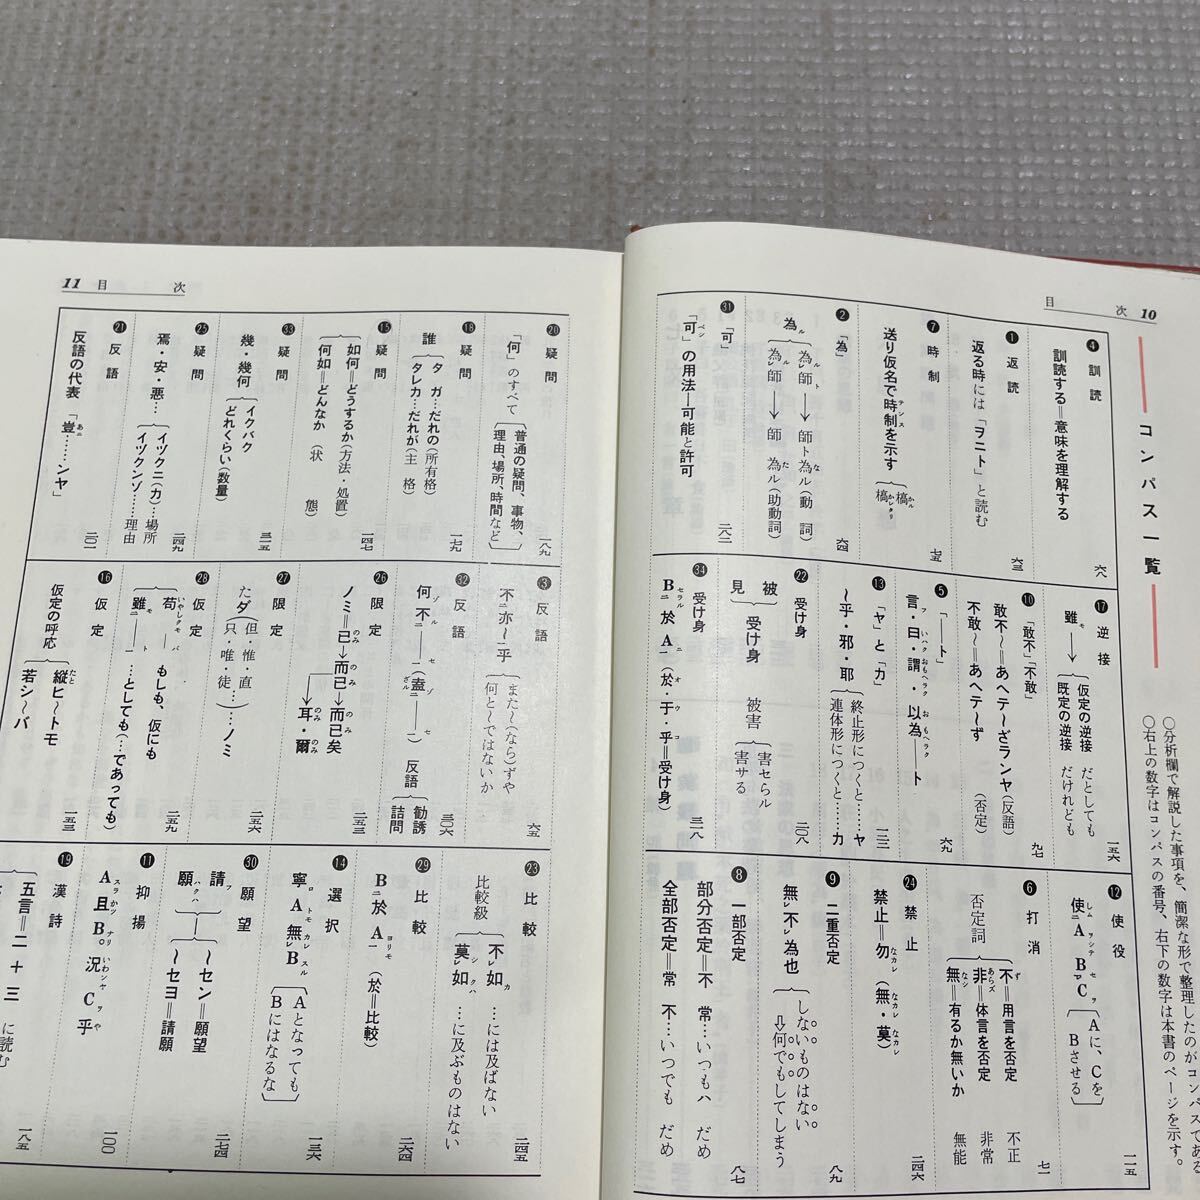 目次 10
コンパス一覧
○分析欄で解説した事項を、簡潔な形で整理したのがコンパスである
○右上の数字はコンパスの番号、右下の数字は本書のページを示す。
❹ 訓読
訓読する＝意味を理解する
六八
❶ 返読
返る時には「ヲニト」と読む
六三
❼ 時制
送り仮名で時制を示す
テンス
槁かル
槁かレタリ
七五
❷「為」
為ル
為ルレ師ト→師ト為なル（動詞）
為ルレ師→師為たル（助動詞）
六四
㉛「可」
「可ベシ」の用法―可能と許可
二六二
⓱ 逆接
雖モ→
仮定の逆接 だとしても
既定の逆接 だけれども
一五六
❿「敢不」「不敢」
敢不〜＝あヘテ〜ざランヤ（反語）
不敢〜＝あヘテ〜ず（否定）
九七
❺「―ト」
言フ・曰いハク・謂おもヘラク・以為おもヘラク―ト
六九
⓭「ヤ」と「カ」
〜乎・邪・耶
終止形につくと……ヤ
連体形につくと……カ
一三三
㉒ 受け身
被 見
受け身
被害
害セラル
害サル
二〇八
㉞ 受け身
BセラルニAニ於（於オ・于ウ・乎コ＝受け身）
三二八
⓬ 使役
使しムニAヲシテBセCヲ
Aに、Cを
Bさせる
一一五
❻ 打消
否定詞
不ず＝用言を否定 不正
非あらズ＝体言を否定 非常
無なシ＝有るか無いか 無能
七一
㉔ 禁止
禁止＝勿なカレ（無なカレ・莫なカレ）
二四六
❾ 二重否定
無レ不レ為也
しないものはない
⇩何でもしてしまう
八九
❽ 一部否定
部分否定＝不常…いつもハ だめ
全部否定＝常不…いつでも だめ
八七
11 目次
⓴ 疑問
「何」のすべて
普通の疑問、事物、
理由、場所、時間など
一八九
⓲ 疑問
誰
タガ…だれの（所有格）
タレカ…だれが（主格）
一七九
⓯ 疑問
如何＝どうするか（方法・処置）
何如＝どんなか（状態）
一四七
㉝ 疑問
幾・幾何
イクバク
どれくらい（数量）
三二五
㉕ 疑問
焉・安・悪…
イヅクニ（カ）…場所
イヅクンゾ……理由
二四九
㉑ 反語
反語の代表「豈あニ……ンヤ」
二〇一
❸ 反語
不ニ亦〜一乎
また〜（なら）ずや
何と〜ではないか
六五
㉜ 反語
何ゾ不ル―セ（盍ゾニざル―セ）
反語
勧誘
詰問
三〇六
㉖ 限定
ノミ＝已のみ→而已のみ→而已矣のみ
耳のみ・爾のみ
二五三
㉗ 限定
ただ（但・惟・直・只・唯・徒）…ノミ
二五六
㉘ 仮定
苟いやしクモ―バ もしも、仮にも
雖モ―ト …としても（…であっても）
二五九
⓰ 仮定
仮定の呼応
縦たとヒ〜トモ
若シ〜バ
一五三
㉓ 比較
比較級
不レ如カ …には及ばない
莫シレ如クハ …に及ぶものはない
二四五
㉙ 比較
BニA於ヨリモ（於＝比較）
二六四
⓮ 選択
寧ロAトモ無カレBスル
Aとなっても
Bにはなるな
一三六
㉚ 願望
請フ
願ハクハ
〜セン＝願望
〜セヨ＝請願
二七四
⓫ 抑揚
AスラかツB且ナリ。況いわンヤCヲ乎や
一〇〇
⓳ 漢詩
五言＝二＋三
に読む
一八五